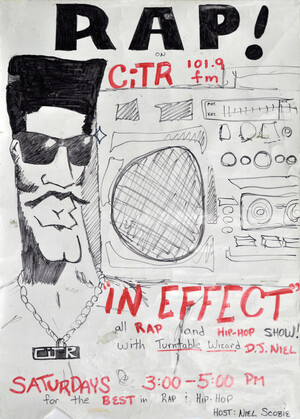 RAP!
ON
CiTR 101.9
fm
"IN EFFECT"
all RAP and HIP-HOP SHOW!
with Turntable Wizard D.J. NIEL
CiTR
SATURDAYS @ 3:00-5:00 PM
for the BEST in RAP & HIP-HOP
HOST: NIEL SCOBIE